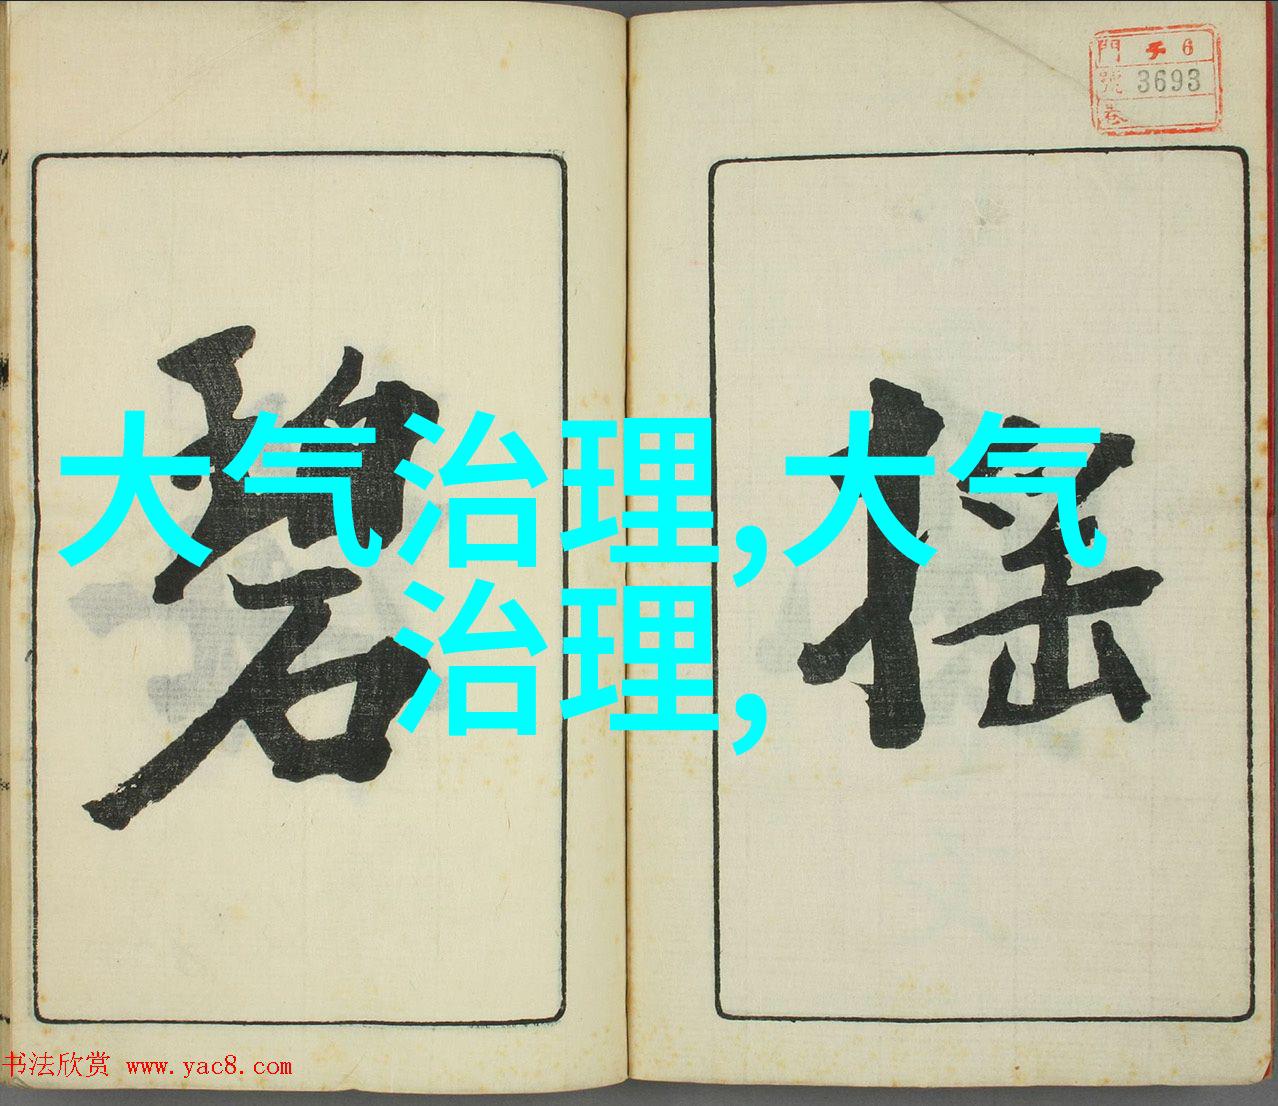 門 チ 6
號 3693
巻
搖
碧
大气治理,大气
治理,
书法欣赏 www.yac8.com